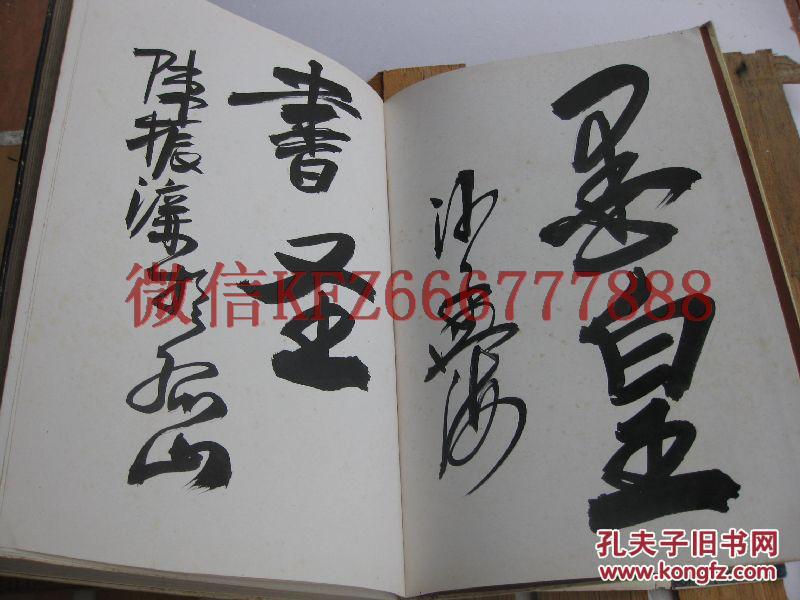 墨皇
沙孟海
書圣
陈振濂於孤山
微信KFZ666777888
孔夫子旧书网
www.kongfz.com